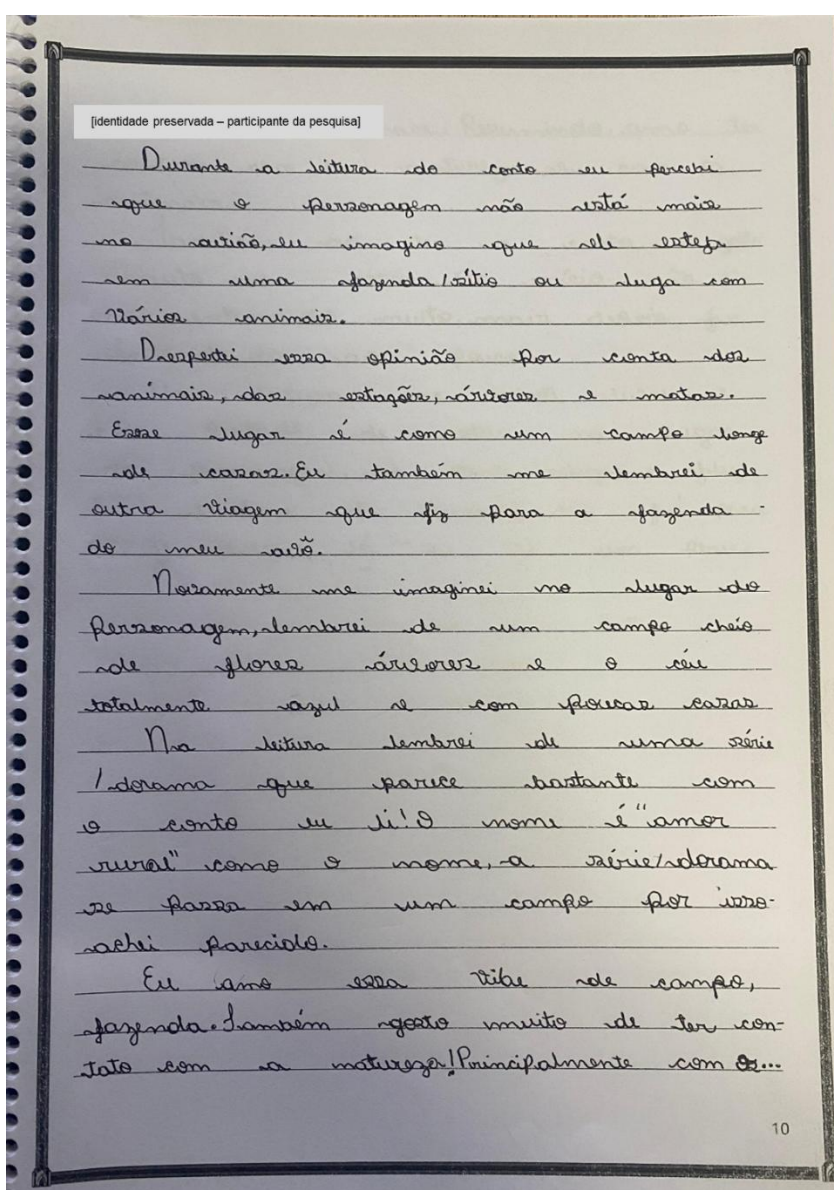 [identidade preservada – participante da pesquisa]
Durante a leitura do conto eu percebi
que o personagem não está mais
no avião, eu imagino que ele esteja
em uma fazenda/sítio ou luga com
vários animais.
Despertei essa opinião por conta dos
animais, das estações, árvores e matas.
Esse lugar é como um campo longe
de casas. Eu também me lembrei de
outra viagem que fiz para a fazenda
do meu avô.
Novamente me imaginei no lugar do
personagem, lembrei de um campo cheio
de flhores árvores e o céu
totalmente azul e com poucas casas
Na leitura lembrei de uma série
/dorama que parece bastante com
o conto eu li! O nome é "amor
rural" como o nome, a série/dorama
se passa em um campo por isso
achei parecido.
Eu amo essa vibe de campo,
fazenda. Também gosto muito de ter con-
tato com a natureza! Principalmente com os...
10